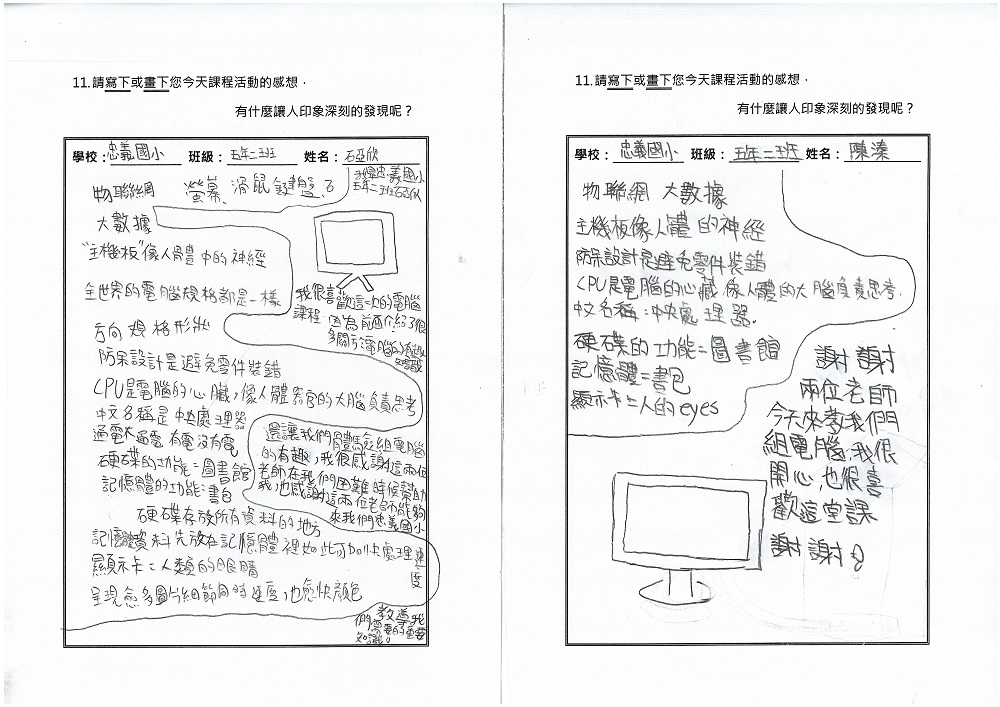 11.請寫下或畫下您今天課程活動的感想，
有什麼讓人印象深刻的發現呢？
學校：忠義國小 班級：五年二班 姓名：石亞欣
物聯網 螢幕、滑鼠、鍵盤
大數據
"主機板"像人體中的神經
全世界的電腦規格都是一樣
方向 規格 形狀
防呆設計是避免零件裝錯
CPU是電腦的心臟，像人體器官的大腦負責思考
中文名稱是中央處理器
通電 有電沒有電
硬碟的功能=圖書館
記憶體的功能=書包
硬碟存放所有資料的地方
記憶體資料先放在記憶體裡如此可加快處理速度
顯示卡=人類的眼睛
呈現愈多圖 細節同時 也愈快 顏色
忠義國小
五年二班石亞欣
我很喜歡這一次的電腦
課程，因為 介紹了很
多關於電腦的有趣
知識
還讓我們體驗組電腦
的有趣，我很感謝這兩位
老師在我們困難時候幫助
我，也感謝這兩位老師能夠
來我們忠義國小
教導我
們需要的重要
知識。
11.請寫下或畫下您今天課程活動的感想，
有什麼讓人印象深刻的發現呢？
學校：忠義國小 班級：五年二班 姓名：陳溱
物聯網 大數據
主機板像人體的神經
防呆設計是避免零件裝錯
CPU是電腦的心臟，像人體的大腦負責思考.
中文名稱：中央處理器.
硬碟的功能=圖書館
記憶體=書包
顯示卡=人的eyes
謝謝
兩位老師
今天來教我們
組電腦，我很
開心，也很喜
歡這堂課
謝謝